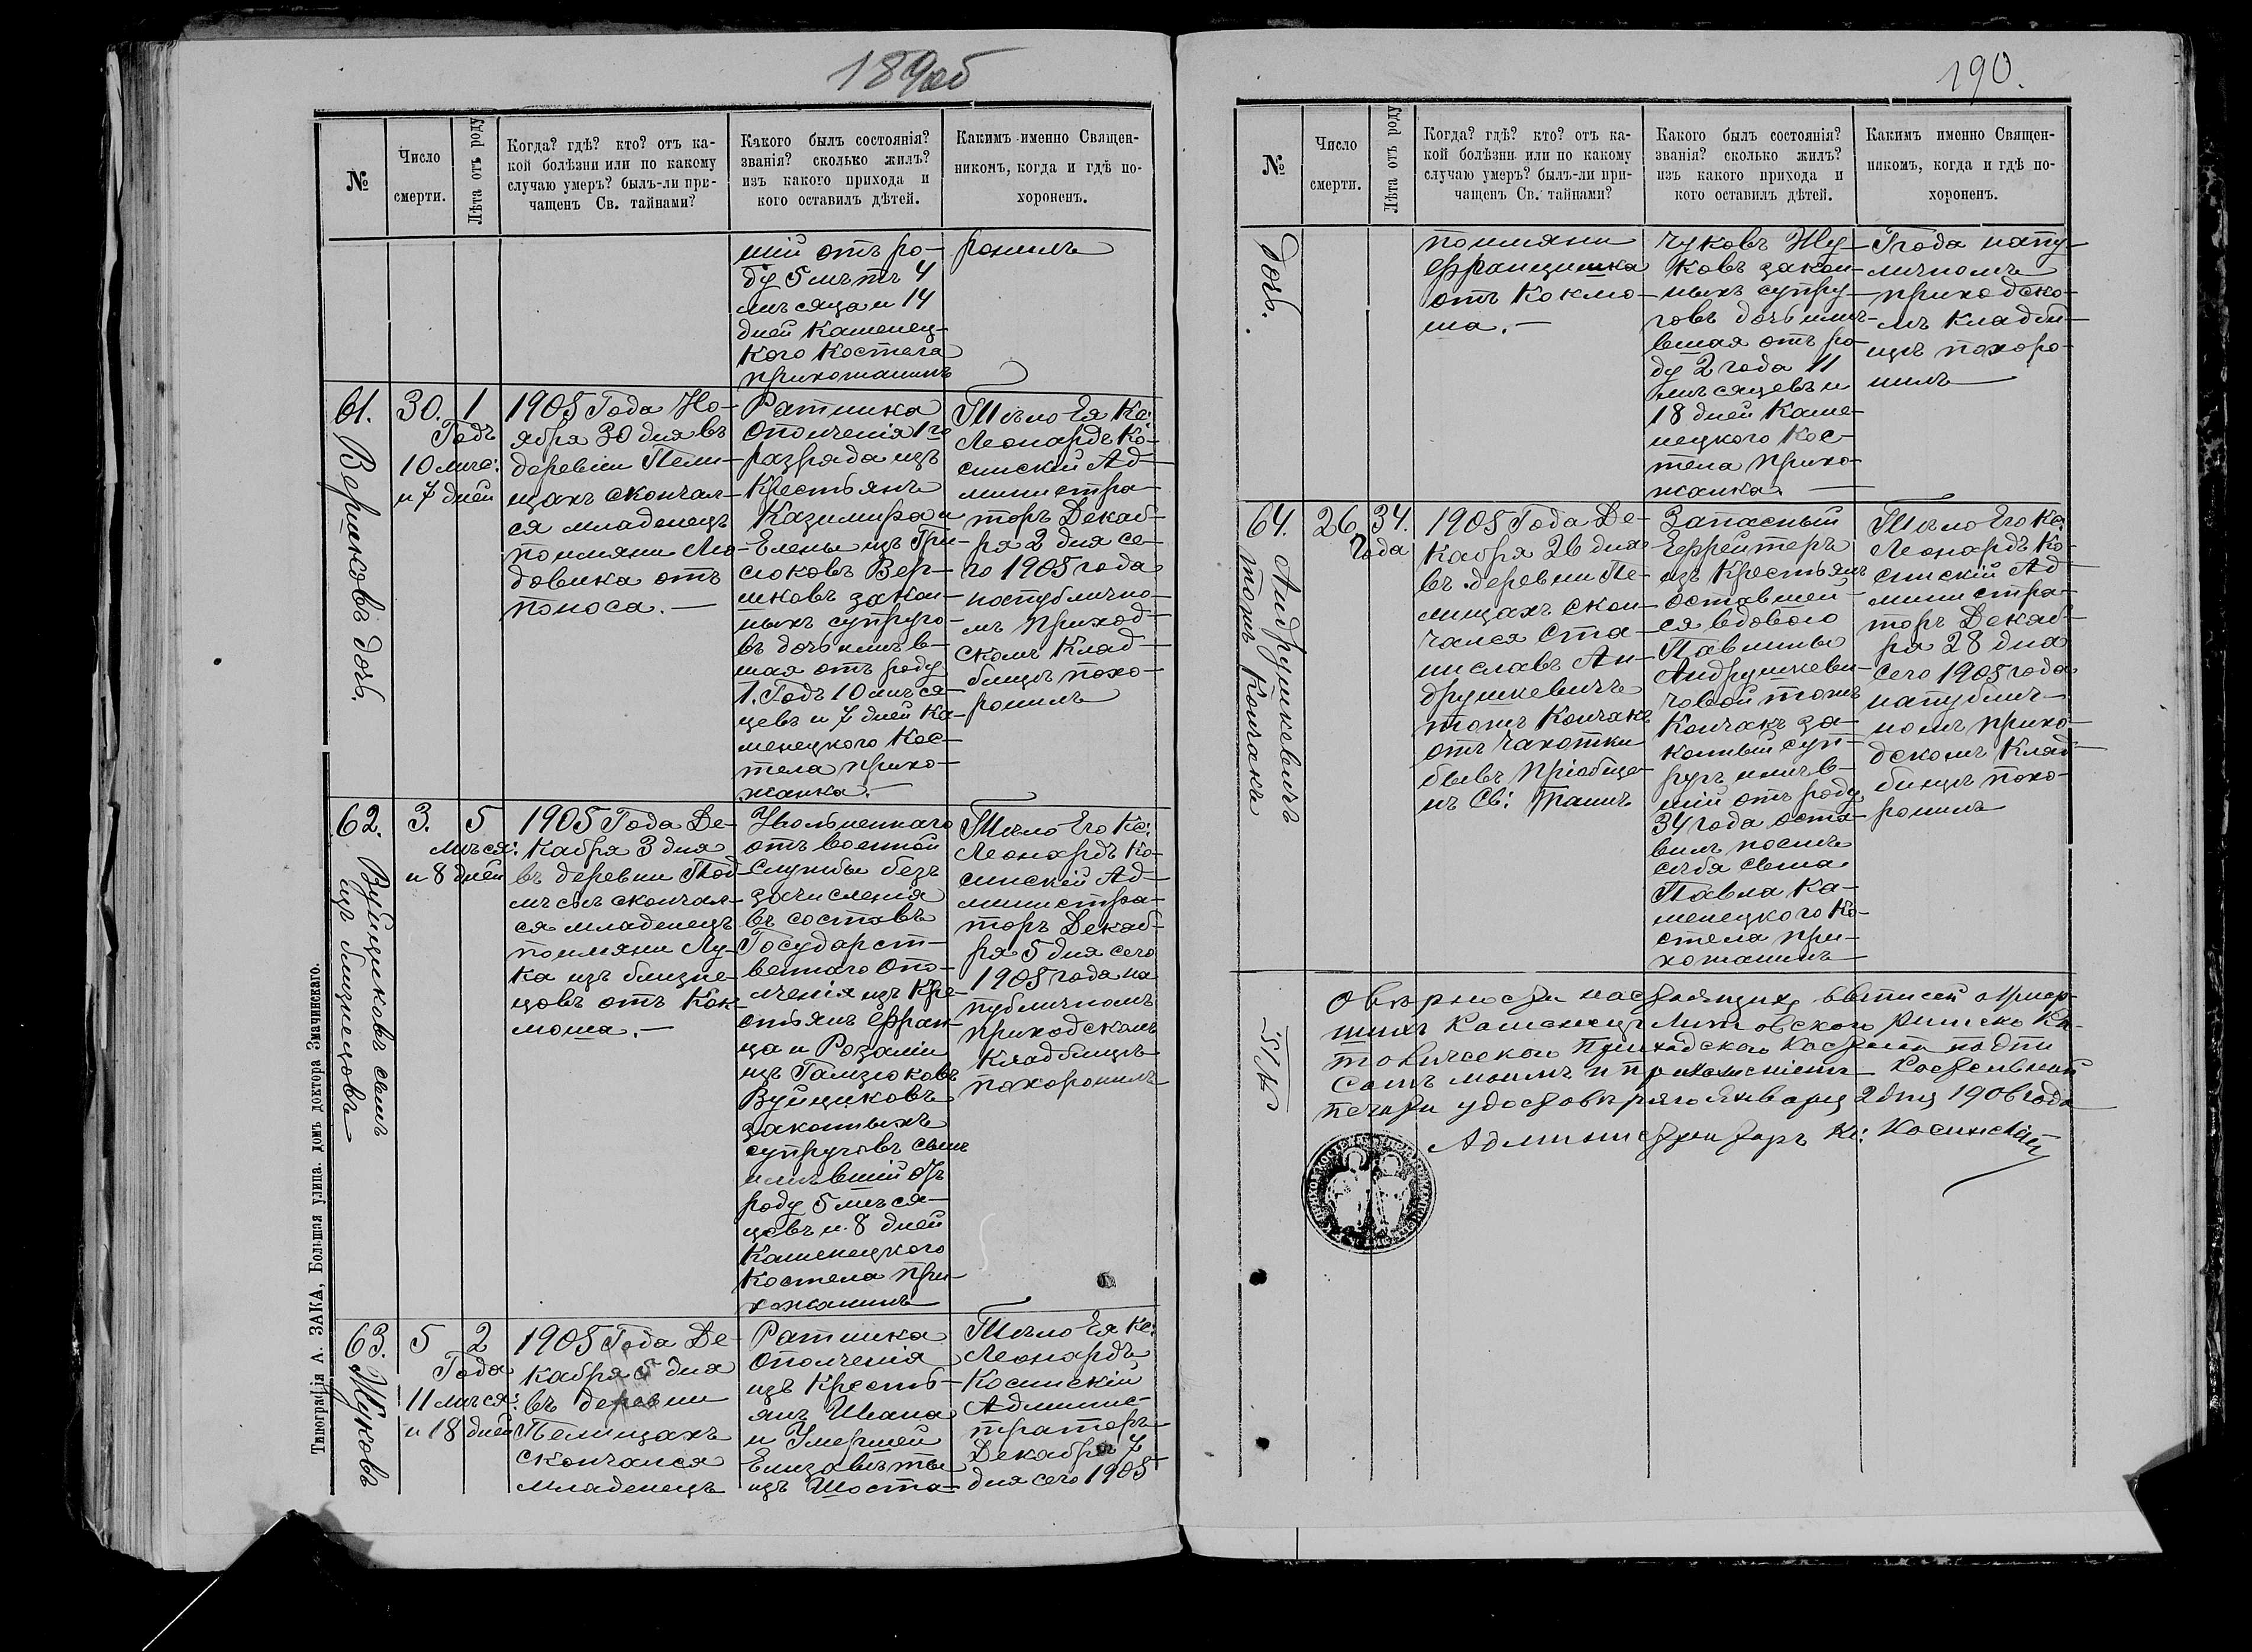 189об
№
Число
смерти.
Лѣта отъ роду
Когда? гдѣ? кто? отъ ка-
кой болѣзни или по какому
случаю умеръ? былъ-ли при-
чащенъ Св. тайнами?
Какого былъ состоянія?
званія? сколько жилъ?
изъ какого прихода и
кого оставилъ дѣтей.
Какимъ именно Священ-
никомъ, когда и гдѣ по-
хороненъ.
шій отъ ро-
ду 5 лѣтъ 4
мѣсяца и 14
дней Каменец-
кого Костела
прихожанинъ
ронилъ
61.
Вершковъ дочь.
30.
1
Годъ
10 мѣс:
и 7 дней
1905 Года Но-
ября 30 дня въ
деревни Пели-
щахъ скончал-
ся младенецъ
поимяни Лю-
довика отъ
поноса. —
Ратника
Ополченія 1го
разряда изъ
Крестьянъ
Казимира и
Елены изъ Гри-
сюковъ Вер-
шковъ закон-
ныхъ супруго-
въ дочь имѣв-
шая отъ роду
1. Годъ 10 мѣся-
цевъ и 7 дней Ка-
менецкого Кос-
тела прихо-
жанка. —
Тѣло Ея Кс:
Леонардъ Ко-
синскій Ад-
министра-
торъ Декаб-
ря 2 дня се-
го 1905 года
напублично-
мъ приход-
скомъ Клад-
бищѣ похо-
ронилъ
62.
Вуйциковъ сынъ
изъ близнецовъ
3.
5
мѣся:
и 8 дней
1905 Года Де-
кабря 3 дня
въ деревни Под-
лѣсѣ скончал-
ся младенецъ
поимяни Лу-
ка изъ близне-
цовъ отъ Кок-
люша. —
Увольненнаго
отъ военной
службы безъ
зачисленія
въ составъ
Государст-
веннаго Опо-
лченія изъ Кре-
стьянъ Фран-
ца и Розаліи
изъ Гамзюковъ
Вуйциковъ
законныхъ
супруговъ сынъ
имѣвшій отъ
роду 5 мѣся-
цовъ и 8 дней
Каменецкого
Костела при-
хожанинъ
Тѣло Его Кс:
Леонардъ Ко-
синскій Ад-
министра-
торъ Декаб-
ря 5 дня сего
1905 года на
публичномъ
приходскомъ
Кладбищѣ
похоронилъ
63.
Жуковъ
5
2
Года
11 мѣся:
и 18 дней
1905 Года Де-
кабря 5 дня
въ деревни
Пелищахъ
скончался
младенецъ
Ратника
Ополченія
изъ Кресть-
янъ Ивана
и Умершей
Елизаветы
изъ Шоста-
Тѣло Ея Кс:
Леонардъ
Косинскій
Админис-
траторъ
Декабря 7
дня сего 1905
Типографія А. ЗАКА, Большая улица. домъ доктора Змачинскаго.
190.
№
Число
смерти.
Лѣта отъ роду
Когда? гдѣ? кто? отъ ка-
кой болѣзни или по какому
случаю умеръ? былъ-ли при-
чащенъ Св. тайнами?
Какого былъ состоянія?
званія? сколько жилъ?
изъ какого прихода и
кого оставилъ дѣтей.
Какимъ именно Священ-
никомъ, когда и гдѣ по-
хороненъ.
дочь.
поимяни
Францишка
отъ Коклю-
ша. —
чуковъ Жу-
ковъ закон-
ныхъ супру-
говъ дочь имѣ-
вшая отъ ро-
ду 2 года 11
мѣсяцевъ и
18 дней Каме-
нецкого Кос-
тела прихо-
жанка. —
Года напу-
личномъ
приходско-
мъ кладби-
щѣ похоро-
нилъ
64.
Андрушкевичъ
тожъ Кончакъ
26
34.
Года
1905 Года Де-
кабря 26 дня
въ деревни Пе-
лищахъ скон-
чался Ста-
ниславъ Ан-
друшкевичъ
тожъ Кончакъ
отъ чахотки
бывъ пріобще-
нъ Св: Таинъ
Запасный
Ефрейтеръ
изъ Крестьянъ
оставшей-
ся вдового
Павлины
Андрушкеви-
човой тожъ
Кончакъ за-
конный суп-
ругъ имѣв-
шій отъ роду
34 года оста-
вилъ послѣ
себя сына
Павла Ка-
менецкого Ко-
стела при-
хожанинъ
Тѣло Его Кс:
Леонардъ Ко-
синскій Ад-
министра-
торъ Декаб-
ря 28 дня
сего 1905 года
напублич-
номъ прихо-
дскомъ Клад-
бищѣ похо-
ронилъ
О вѣрности настоящихъ выписей о умер-
шихъ Каменецъ Литовского Римско Ка-
толическаго Приходскаго Костела подпи
сомъ моимъ и приложеніемъ Костельной
печати удостовѣряю Января 2 дня 1906 года
Администраторъ Кс: Косинскій